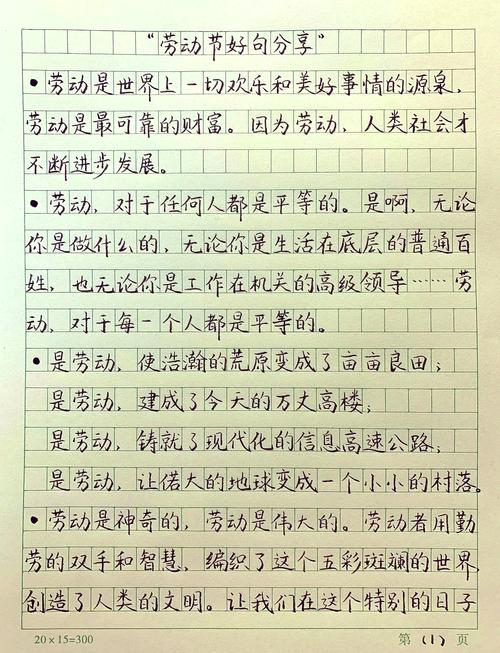 “劳动节好句分享”
•劳动是世界上一切欢乐和美好事情的源泉，
劳动是最可靠的财富。因为劳动，人类社会才
不断进步发展。
•劳动，对于任何人都是平等的。是啊，无论
你是做什么的，无论你是生活在底层的普通百
姓，也无论你是工作在机关的高级领导……劳
动，对于每一个人都是平等的。
•是劳动，使浩瀚的荒原变成了亩亩良田；
是劳动，建成了今天的万丈高楼；
是劳动，铸就了现代化的信息高速公路；
是劳动，让偌大的地球变成一个小小的村落。
•劳动是神奇的，劳动是伟大的。劳动者用勤
劳的双手和智慧，编织了这个五彩斑斓的世界
创造了人类的文明。让我们在这个特别的日子
20×15=300 第（1）页